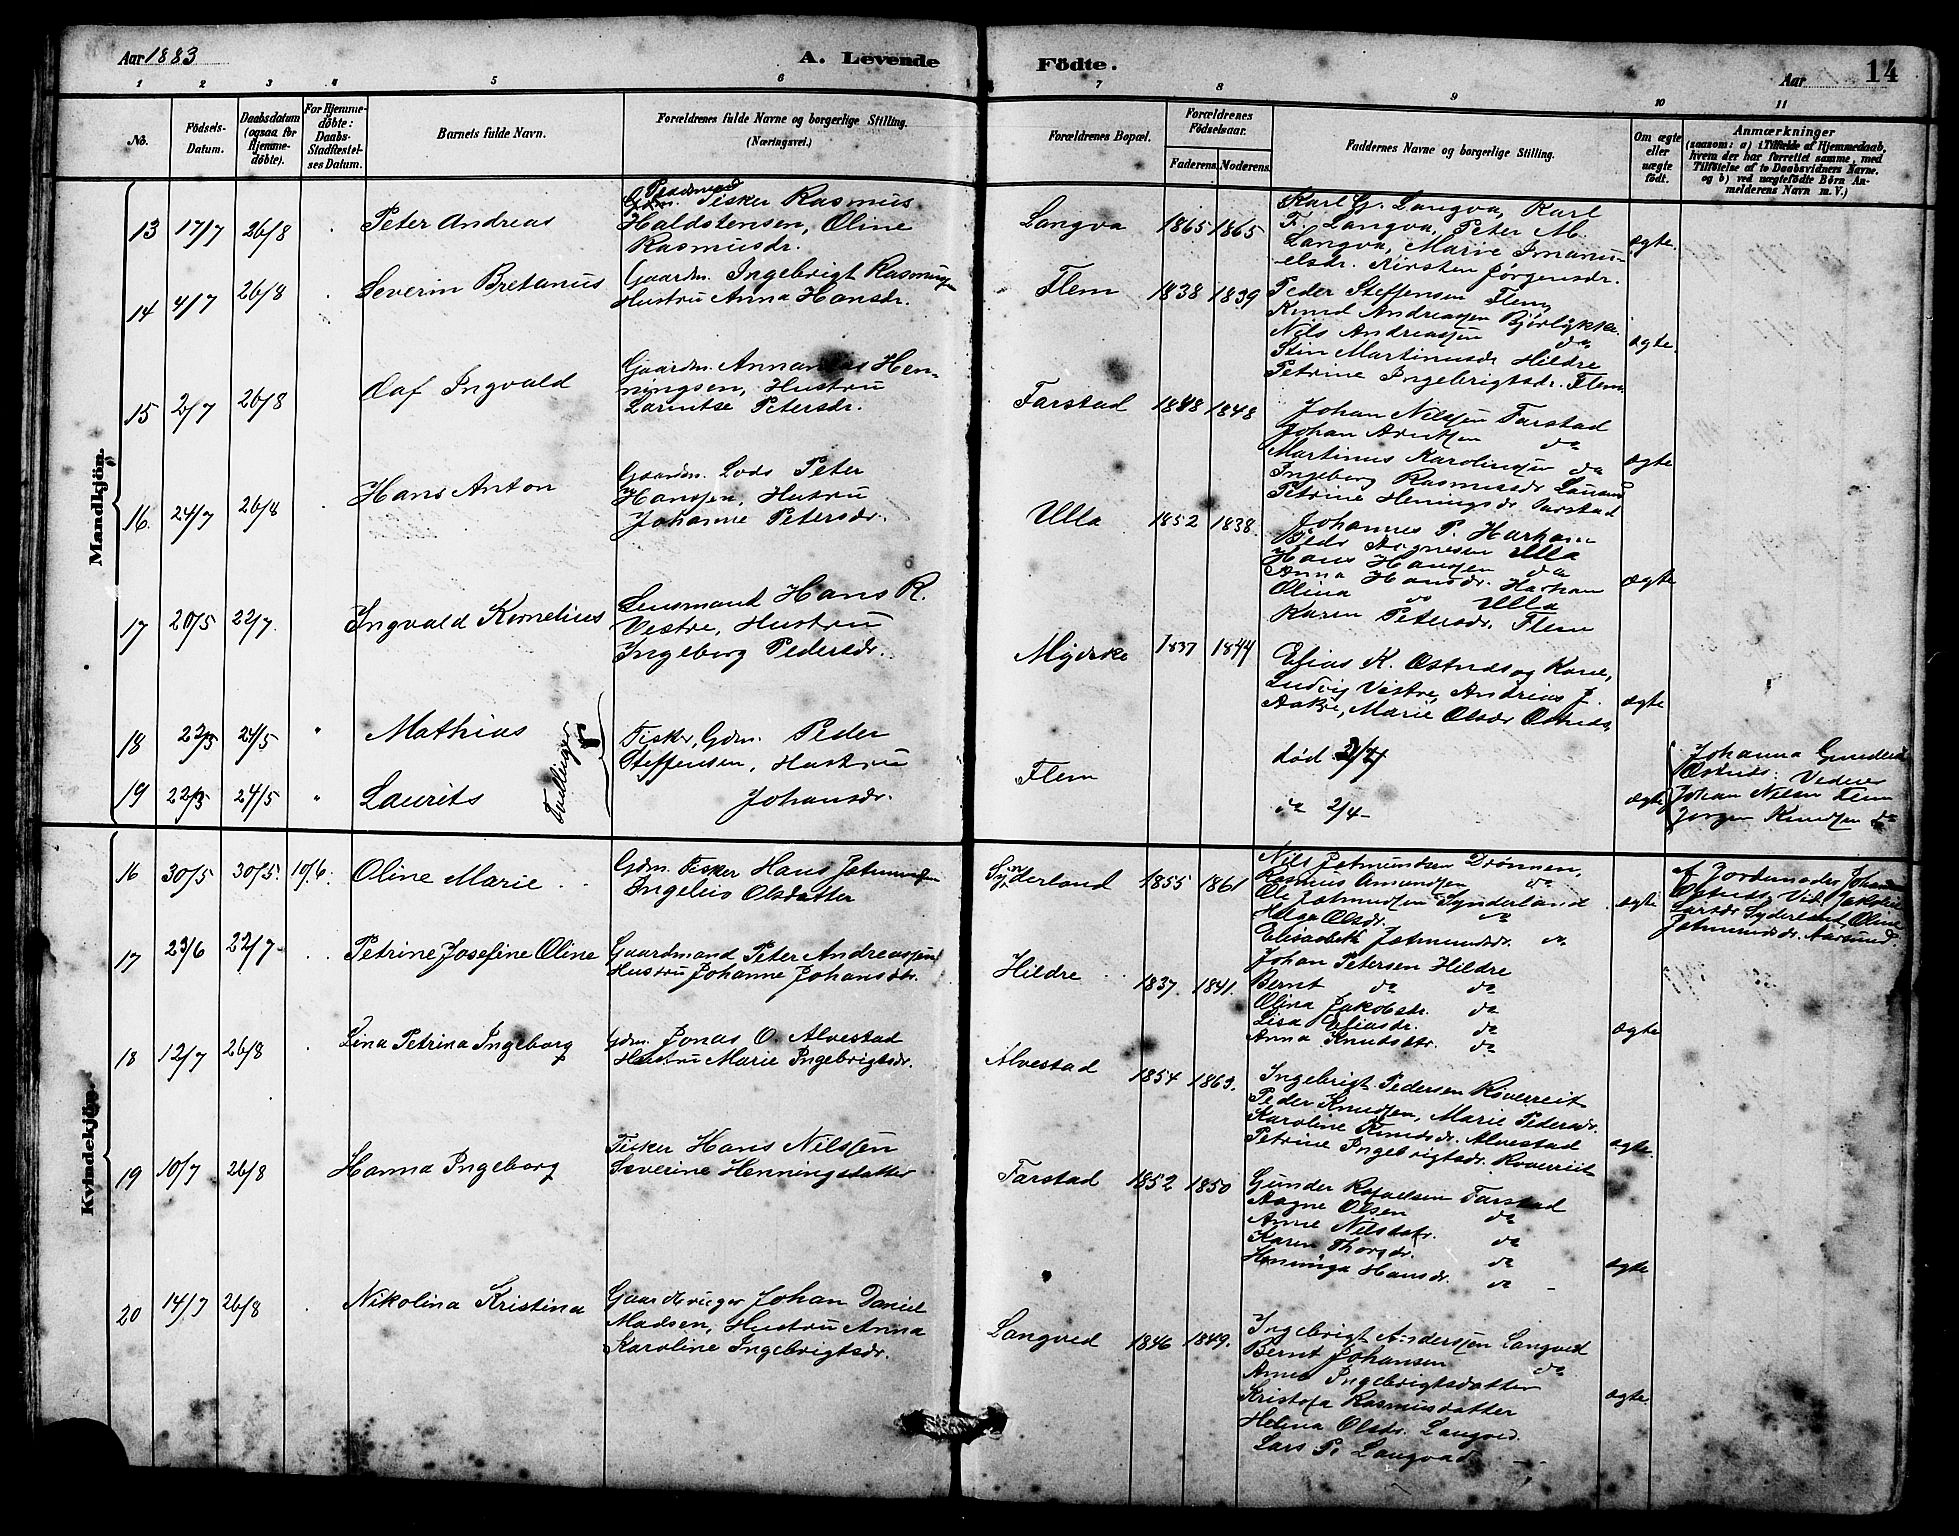 Aar 1883
A. Levende Födte.
Aar
14
1 2 3 4 5 6 7 8 9 10 11
No.
Födsels-Datum.
Daabsdatum (ogsaa for Hjemme-döbte).
For Hjemme-döbte: Daabs-Stadfæstel-ses Datum.
Barnets fulde Navn.
Forældrenes fulde Navne og borgerlige Stilling. (Næringsvei.)
Forældrenes Bopæl.
Forældrenes Födselsaar.
Faderens. Moderens.
Faddernes Navne og borgerlige Stilling.
Om ægte eller uægte födt.
Anmærkninger
(saasom: a) i Tilfælde af Hjemmedaab, hvem der har forrettet samme, med Tilföielse af to Daabsvidners Navne. og b) ved uægtefödte Börn An-melderens Navn m. V.)
Mandkjön.
13 17/7 26/8 Peter Andreas
Fisker Rasmus
Haldstensen, Oline
Rasmusdr.
Langva 1865 1865
Karl G. Langva, Karl
F. Langva, Peter M.
Langva, Marie Imanu-
elsdr. Kirsten Jørgensdr.
ægte
14 4/7 26/8 Severin Bretanus
Gaardm. Ingebrigt Rasmusen
Hustru Anna Hansdr.
Flem 1838 1839
Peder Steffensen Flem
Knud Andreassen Bjørlykke
Nils Andreassen do
Stin Martinusdr Hildre
Petrine Ingebrigtsdr. Flem
ægte.
15 2/7 26/8 Oaf Ingvald
Gaardm. Annanias Hen-
ningsen, Hustru
Larentse Petersdr.
Farstad 1848 1848
Johan Nilssen Farstad
Johan do
Martinus Karolinssen do
Ingeborg Rasmusdr
Petrine Heningsdr Farstad
ægte
16. 24/7 26/8 Hans Anton
Gaardm. Lods Peter
Hanssen, Hustru
Johanne Petersdr.
Ulla 1852 1838.
Johannes P. Harham
Ulla
Hans Hanssen do
Anna Hansdr. Harham
Olina do Ulla
Karen Petersdr. Flem
ægte
17 20/5 22/7. Ingvald Kornelius
Lensmand Hans R.
Vestre, Hustru
Ingeborg Pedersdr.
Myrske 1837 1844
Elias K. Østnes og Kone,
Ludvig Vestre, Andreas J.
Aakre, Marie Olsdr Østnes
ægte
18 22/3 24/5 " Mathias
19 22/3 24/5 " Laurits
Tvillinger
Fisker, Gdm. Peder
Steffensen, Hustru
Johansdr.
Flem
død 2/4
do 2/4 -
ægte
Johanna
Østnes. Viderer
Johan Nilsen Flem
Jørgen Knudsen do
Kvindekjön.
16 30/5 30/5. 10/6. Oline Marie
Gdm. Fisker Hans Jetmundsen
Ingeleis Olsdatter
Synderland 1855 1861
Nils Jetmundsen Drønnen,
Rasmus Amundsen do
Ole Jetmundsen Synderland
Helga Olsdr. do
Elisabeth Jetmundsdr. do
ægte
af Jordemoder Johanna
Østnes. Vid. Jakobine
Larsdr Synderland, Oline
Jetmundsdr. Aarsund.
17 23/6 22/7 Petrine Josefine Oline
Gaardmand Peter Andreassen
Hustru Johanne Johansdtr.
Hildre 1837. 1841.
Johan Petersen Hildre
Bernt do do
Olina Jakobsdr. do
Lisa Eliasdr. do
Anna Knudsdtr. do
ægte
18 12/7 26/8 Lina Petrina Ingeborg
Gdm. Jonas O. Alvestad
Hustru Marie Ingebrigtsdr.
Alvestad 1854 1863.
Ingebrigt Pedersen Roverreit
Peder Knudsen, Marie Pedersdr.
Karoline Knudsdr. Alvestad
Petrine Ingebrigtsdr. Roverreit
ægte.
19 10/7 26/8 Hanna Ingeborg
Fisker Hans Nilssen
Severine Henningsdatter
Farstad 1852 1850
Gunder Rafaelsen Farstad
Aagne Olsen do
Anne Nilsdatr. do
Karen Thorsdr. do
Heninga Hansdr. do
ægte
20 14/7 26/8 Nikolina Kristina
Gaardbruger Johan Daniel
Madsen, Hustru Anna
Karoline Ingebrigtsdr.
Langved 1846 1849.
Ingebrigt Anderssen Langved
Bernt Johansen do
Anne Ingebrigtsdatter
Kristofa Rasmusdatter
Helina Olsdr. Langved.
Lars P. Langvad
ægte